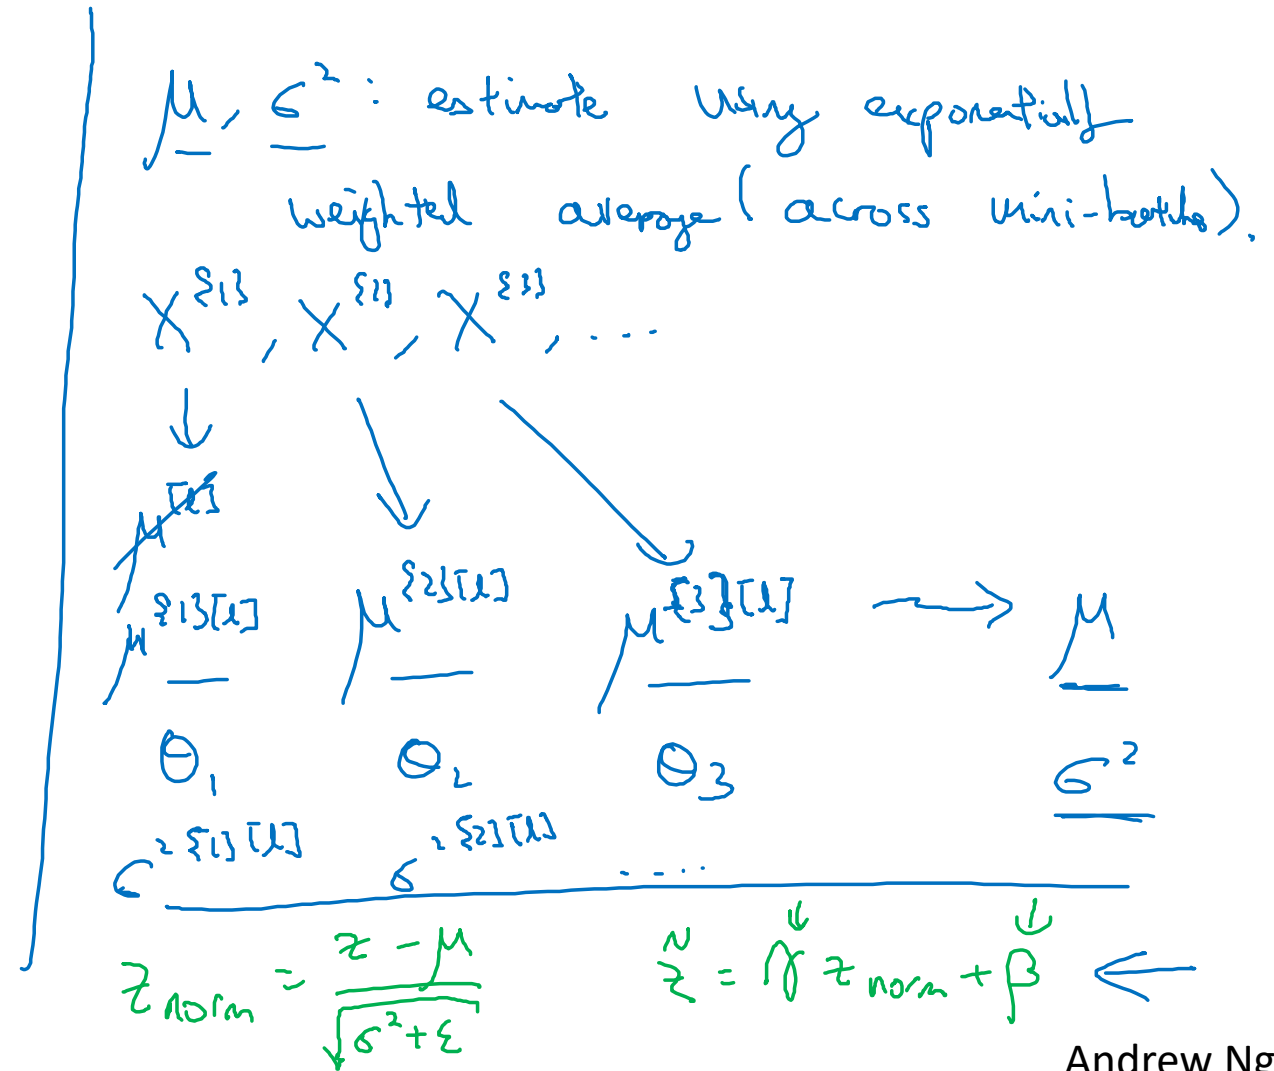 μ, σ² : estimate using exponentially
weighted average (across mini-batches).
X^{1}, X^{2}, X^{3}, ....
μ^[l]
μ^{1}[l] μ^{2}[l] μ^{3}[l] → μ
θ₁ θ₂ θ₃ σ²
σ²^{1}[l] σ²^{2}[l] ....
z_norm = (z - μ) / √(σ² + ε) z̃ = γ z_norm + β ←
Andrew Ng